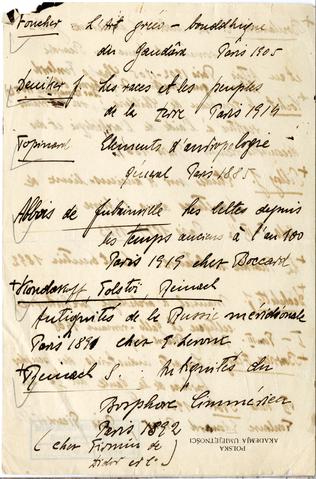 Foucher L'Art gréco-bouddhique
du Gandâra Paris 1905
Deniker J. Les races et les peuples
de la terre Paris 1914
Topinard Elements d'antropologie
général Paris 1885
Abbois de Jubainville les Celtes depuis
les temps anciens à l'an 100
Paris 1919 cher Boccard
+Kondakoff, Tolstoï, Reinach
Antiquités de la Russie méridionale
Paris 1891 cher E. Leroux
+Reinach S: Antiquités du
Bosphore Cimmérien
Paris 1892
(cher Firmin de
Didot et C.)
POLSKA
AKADEMJA UMIEJĘTNOŚCI